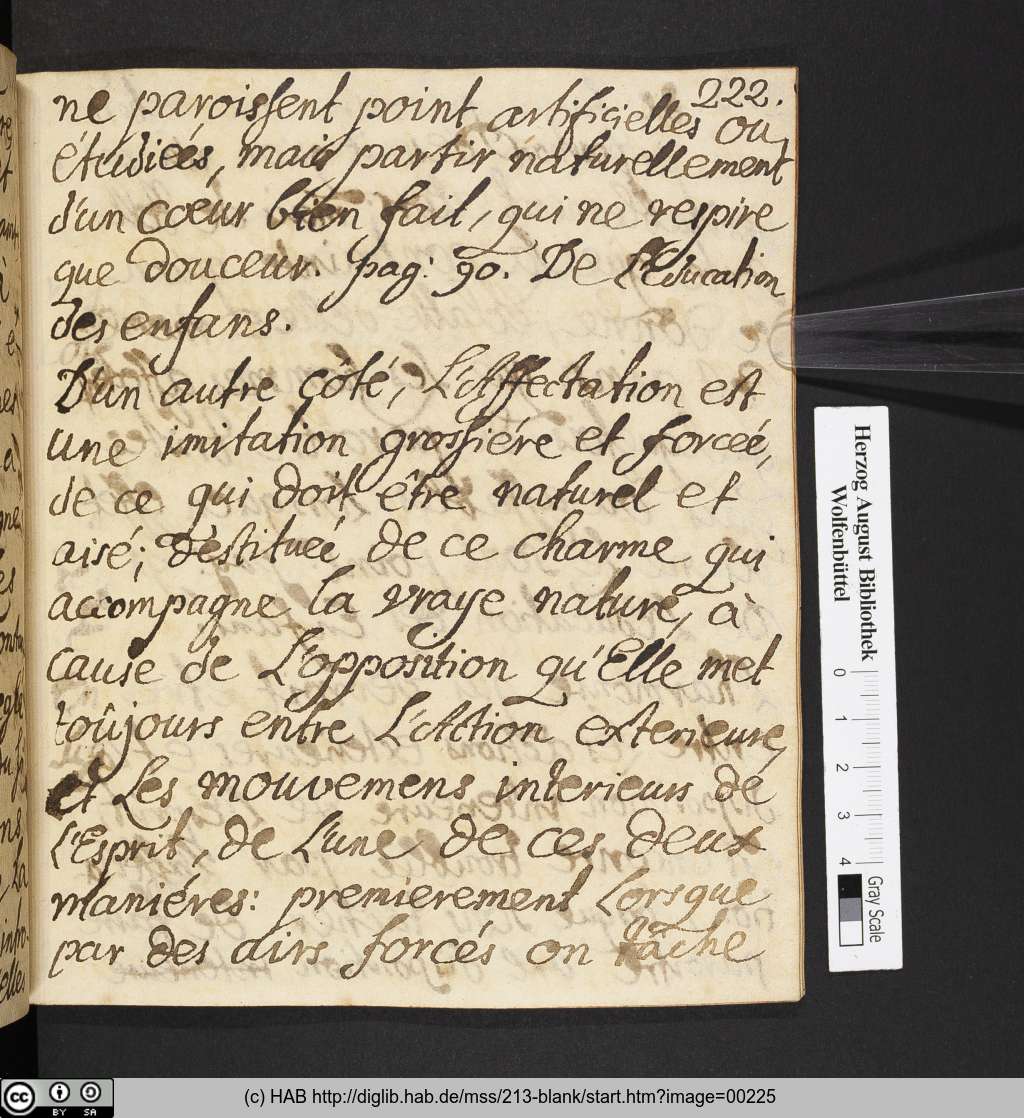 222.
ne paroissent point artificielles ou
étudieés, mais partir naturellement
d'un cœur bien fait, qui ne respire
que douceur. pag: 90. De L'Education
des enfans.
D'un autre côté, L'Affectation est
une imitation grossiére et forceé,
de ce qui doit être naturel et
aisé; destitueé de ce charme qui
accompagne la vraye nature, à
cause de L'opposition qu'Elle met
toûjours entre L'Action exterieure,
et Les mouvemens interieurs de
L'Esprit, de L'une de ces deux
maniéres: premierement Lorsque
par des airs forcés on tâche
Herzog August Bibliothek
Wolfenbüttel
0 1 2 3 4
Gray Scale
cc BY SA
(c) HAB http://diglib.hab.de/mss/213-blank/start.htm?image=00225